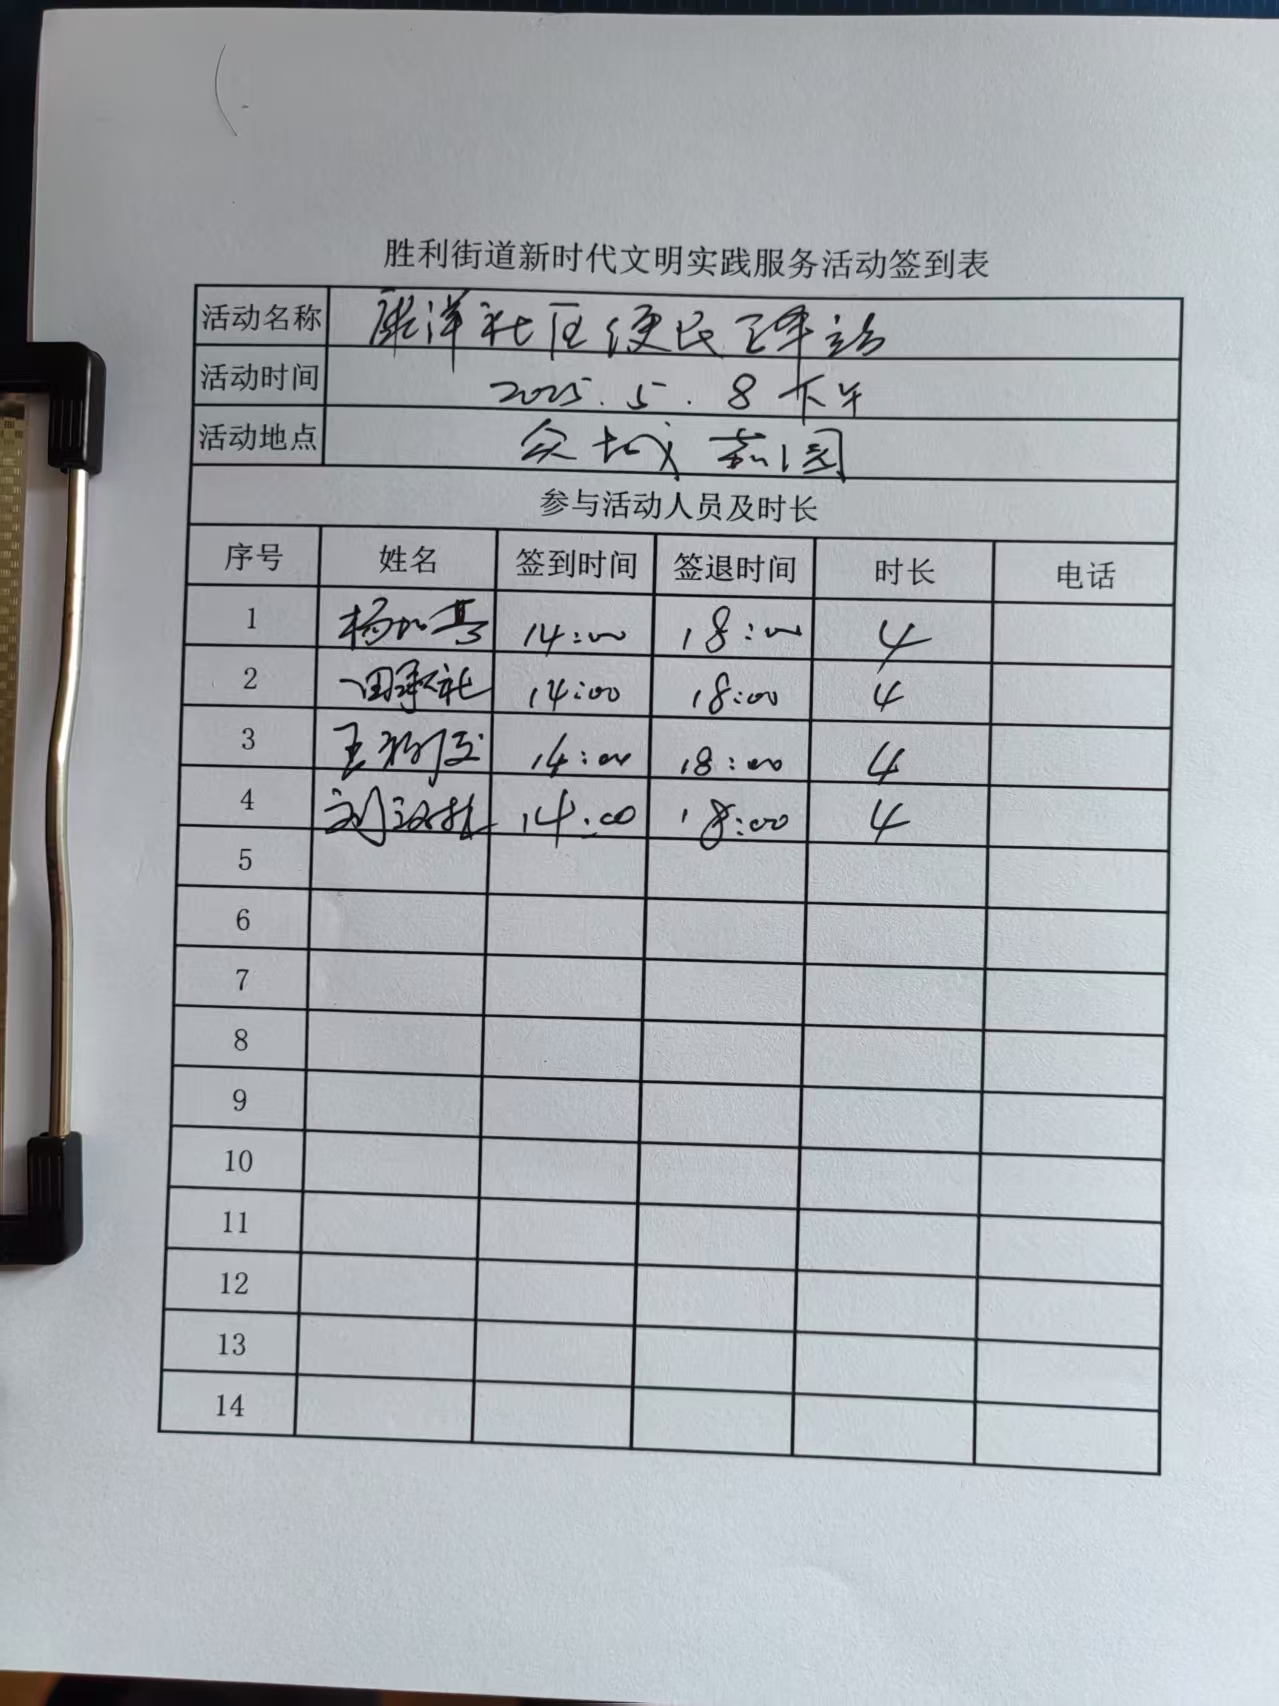 胜利街道新时代文明实践服务活动签到表
活动名称 康洋社区便民驿站
活动时间 2025.5.8 下午
活动地点 众城 园
参与活动人员及时长
序号 姓名 签到时间 签退时间 时长 电话
1 杨 14:00 18:00 4
2 田承社 14:00 18:00 4
3 王 14:00 18:00 4
4 刘汉 14:00 18:00 4
5
6
7
8
9
10
11
12
13
14